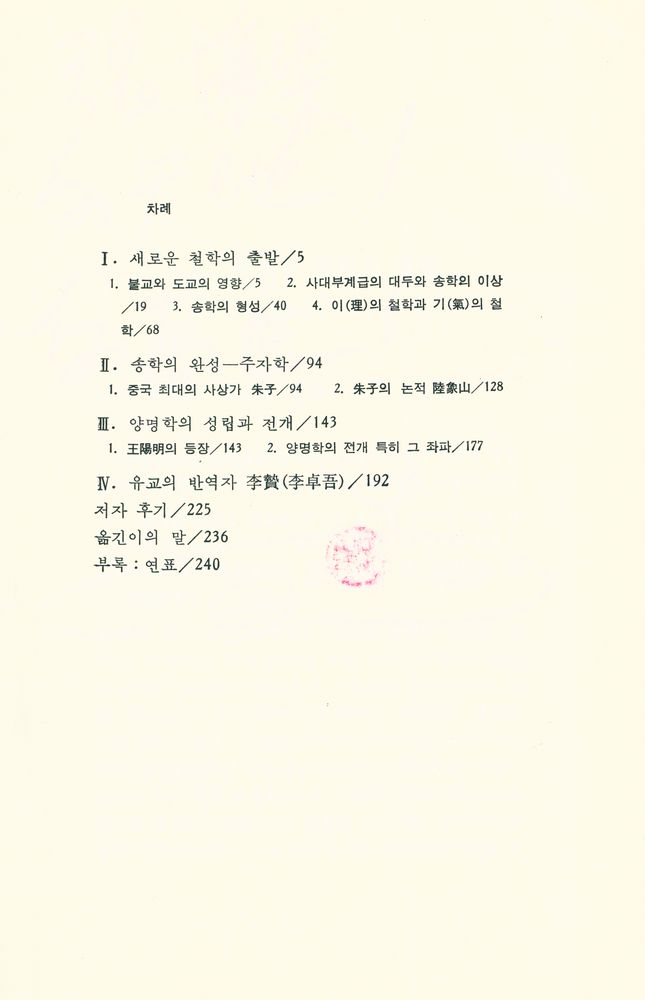 차례
Ⅰ. 새로운 철학의 출발／5
1. 불교와 도교의 영향／5 2. 사대부계급의 대두와 송학의 이상
／19 3. 송학의 형성／40 4. 이(理)의 철학과 기(氣)의 철
학／68
Ⅱ. 송학의 완성―주자학／94
1. 중국 최대의 사상가 朱子／94 2. 朱子의 논적 陸象山／128
Ⅲ. 양명학의 성립과 전개／143
1. 王陽明의 등장／143 2. 양명학의 전개 특히 그 좌파／177
Ⅳ. 유교의 반역자 李贄(李卓吾)／192
저자 후기／225
옮긴이의 말／236
부록 : 연표／240